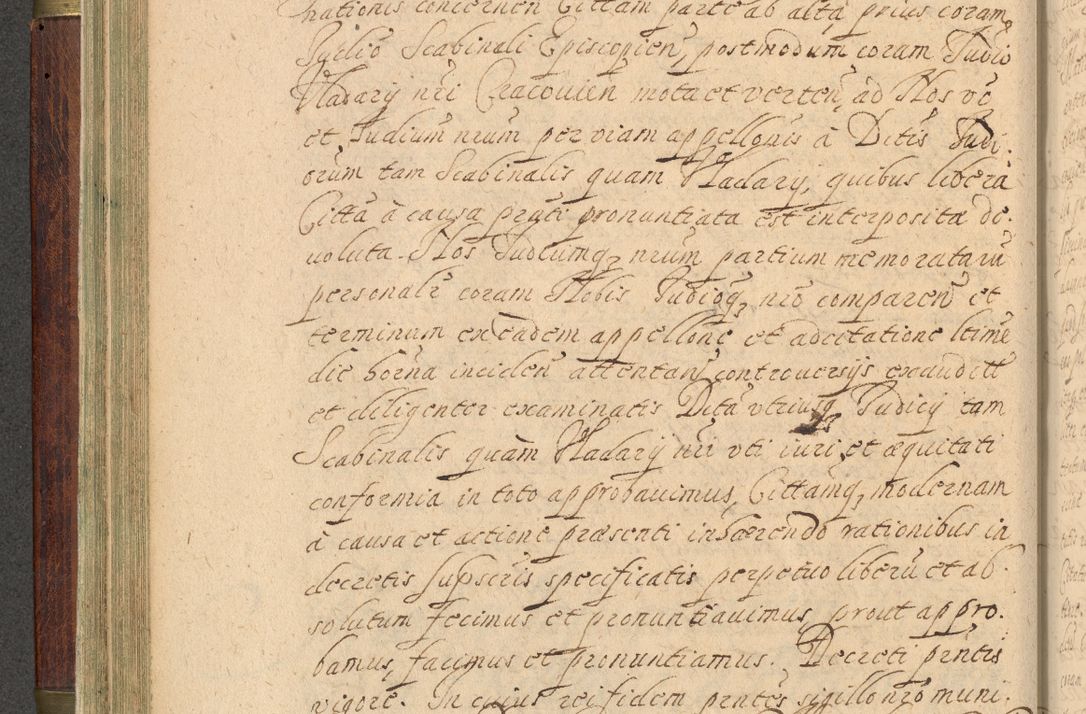 rationis concernen Cittam parte ab alta prius coram
Judio Scabinali Episcopien, postmodum coram Judio
Vladarÿ nri Cracouien mota et verten, ad Nos vo
et Judium nrum per viam appellonis à Ditis Judi-
orum tam Scabinalis quam Vladarÿ, quibus libera
Citta à causa prnti pronuntiata est interposita de-
uoluta. Nos Judiumq, nrum partium memoratarū
personalr coram Nobis Judioq, nro comparen et
terminum ex eadem appellone et adcitatione ltime
die horna inciden attentan controuersÿs exaudett
et diligenter examinatis Dcta vtriusq, Judicÿ tam
Scabinalis quàm Vladarÿ nri vti iuri et æquitati
conformia in toto approbauimus, Cittamq, modernam
à causa et actione præsenti inhærendo rationibus in
decretis supscris specificatis perpetuo liberū et ab-
solutum fecimus et pronuntiauimus, prout appro-
bamus, facimus et pronuntiamus. Decreti prntis
vigore. In cuius rei fidem prntes sigillo nro muni-